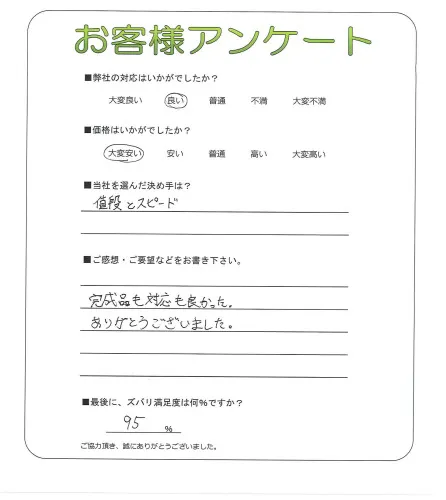 お客様アンケート
■弊社の対応はいかがでしたか?
大変良い 良い 普通 不満 大変不満
■価格はいかがでしたか?
大変安い 安い 普通 高い 大変高い
■当社を選んだ決め手は?
値段とスピード
■ご感想・ご要望などをお書き下さい。
完成品も対応も良かった。
ありがとうございました。
■最後に、ズバリ満足度は何%ですか?
95 %
ご協力頂き、誠にありがとうございました。